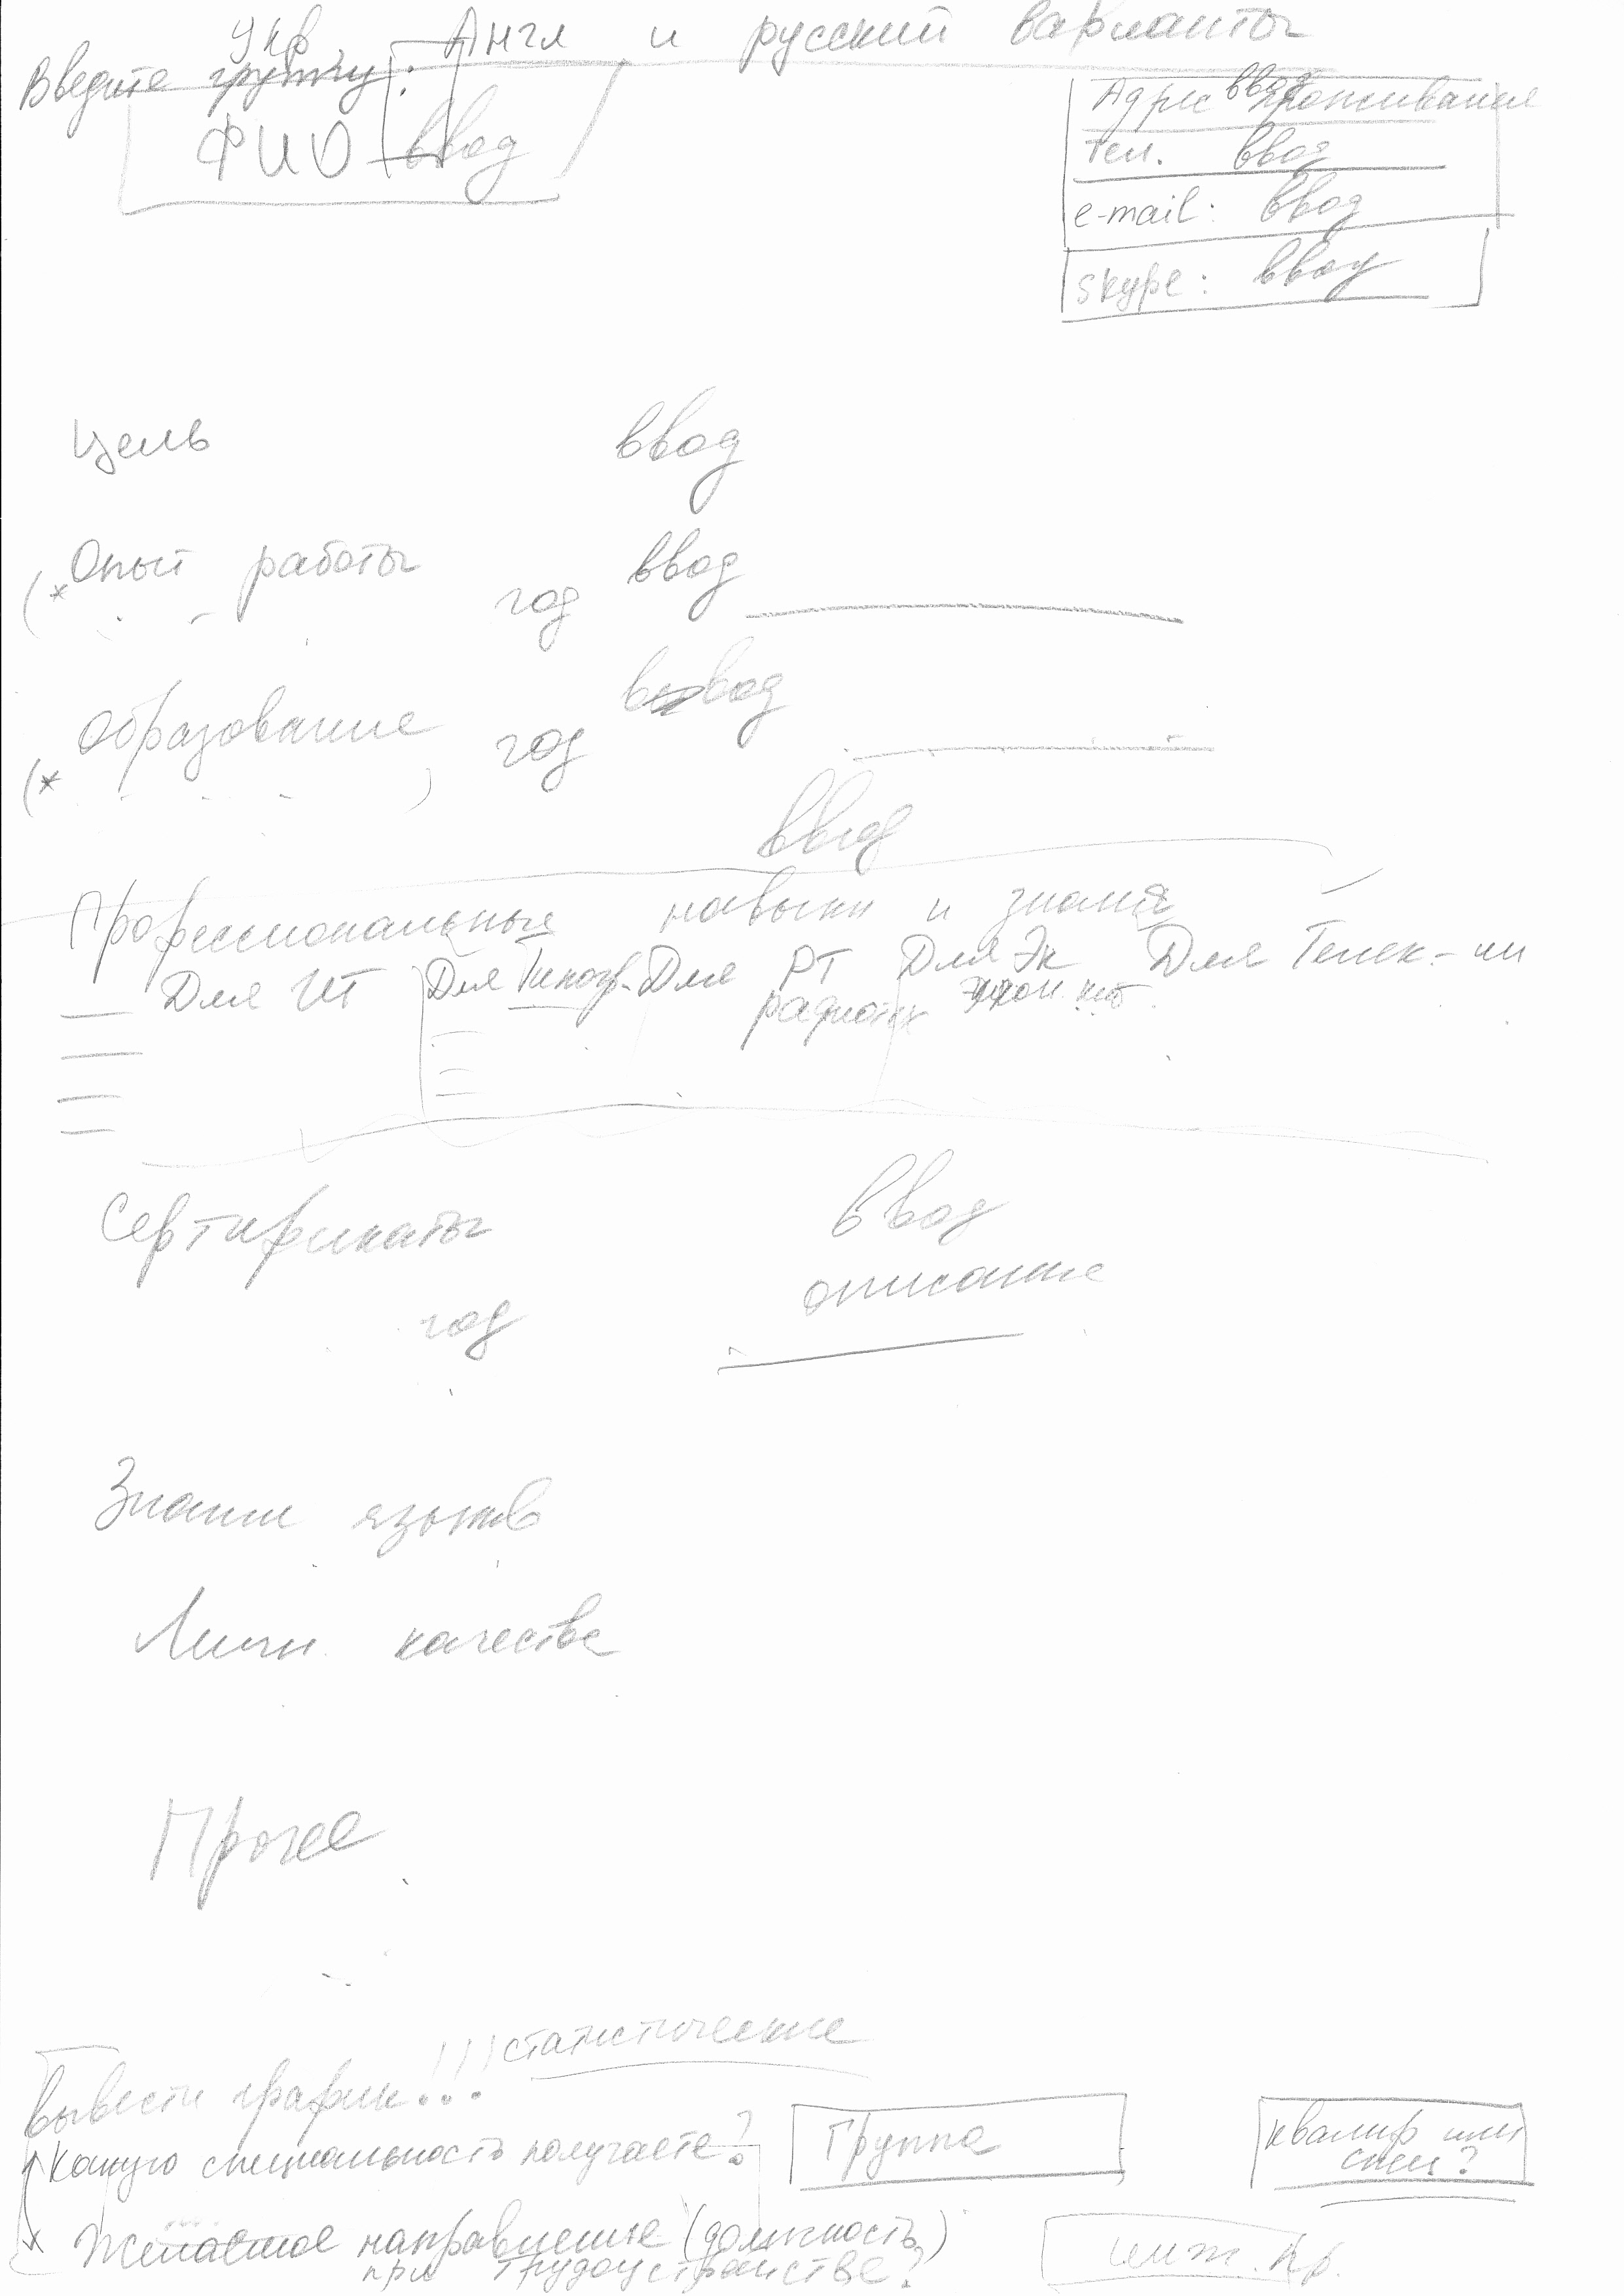 Укр, Англ и русский варианты
Введите группу:
ФИО ввод
Адрес проживания ввод
тел. ввод
e-mail: ввод
skype: ввод
Цель ввод
Опыт работы ввод
(* год
Образование ввод
(* ) год
ввод
Профессиональные навыки и знания
Для ИТ Для Типогр. Для РТ Для Эк Для Телек-ии
радиотех
Сертификаты ввод
год описание
Знание языков
Личн. качества
Прочее
!!! статистические
Вывести график...
Какую специальность получаете? Группа квалиф или спец?
* Желаемое направление (должность)
при трудоустройстве?